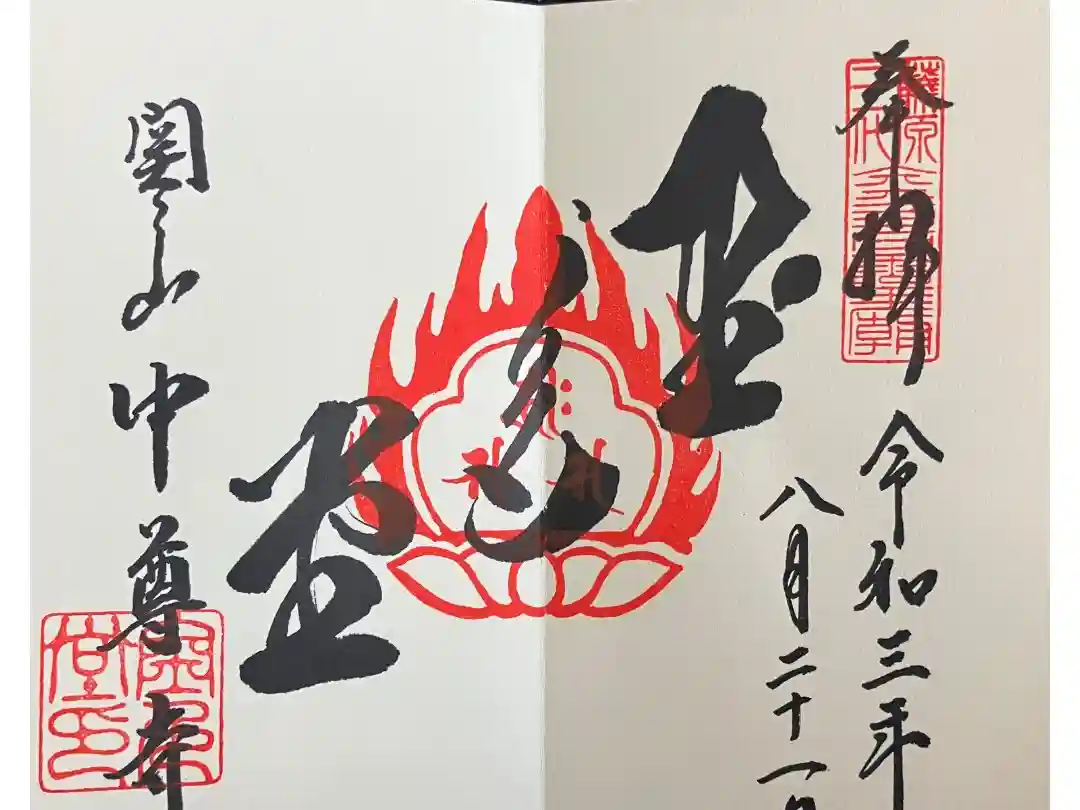 奉拝
令和三年
八月二十一日
金色堂
関山中尊寺
金色堂印